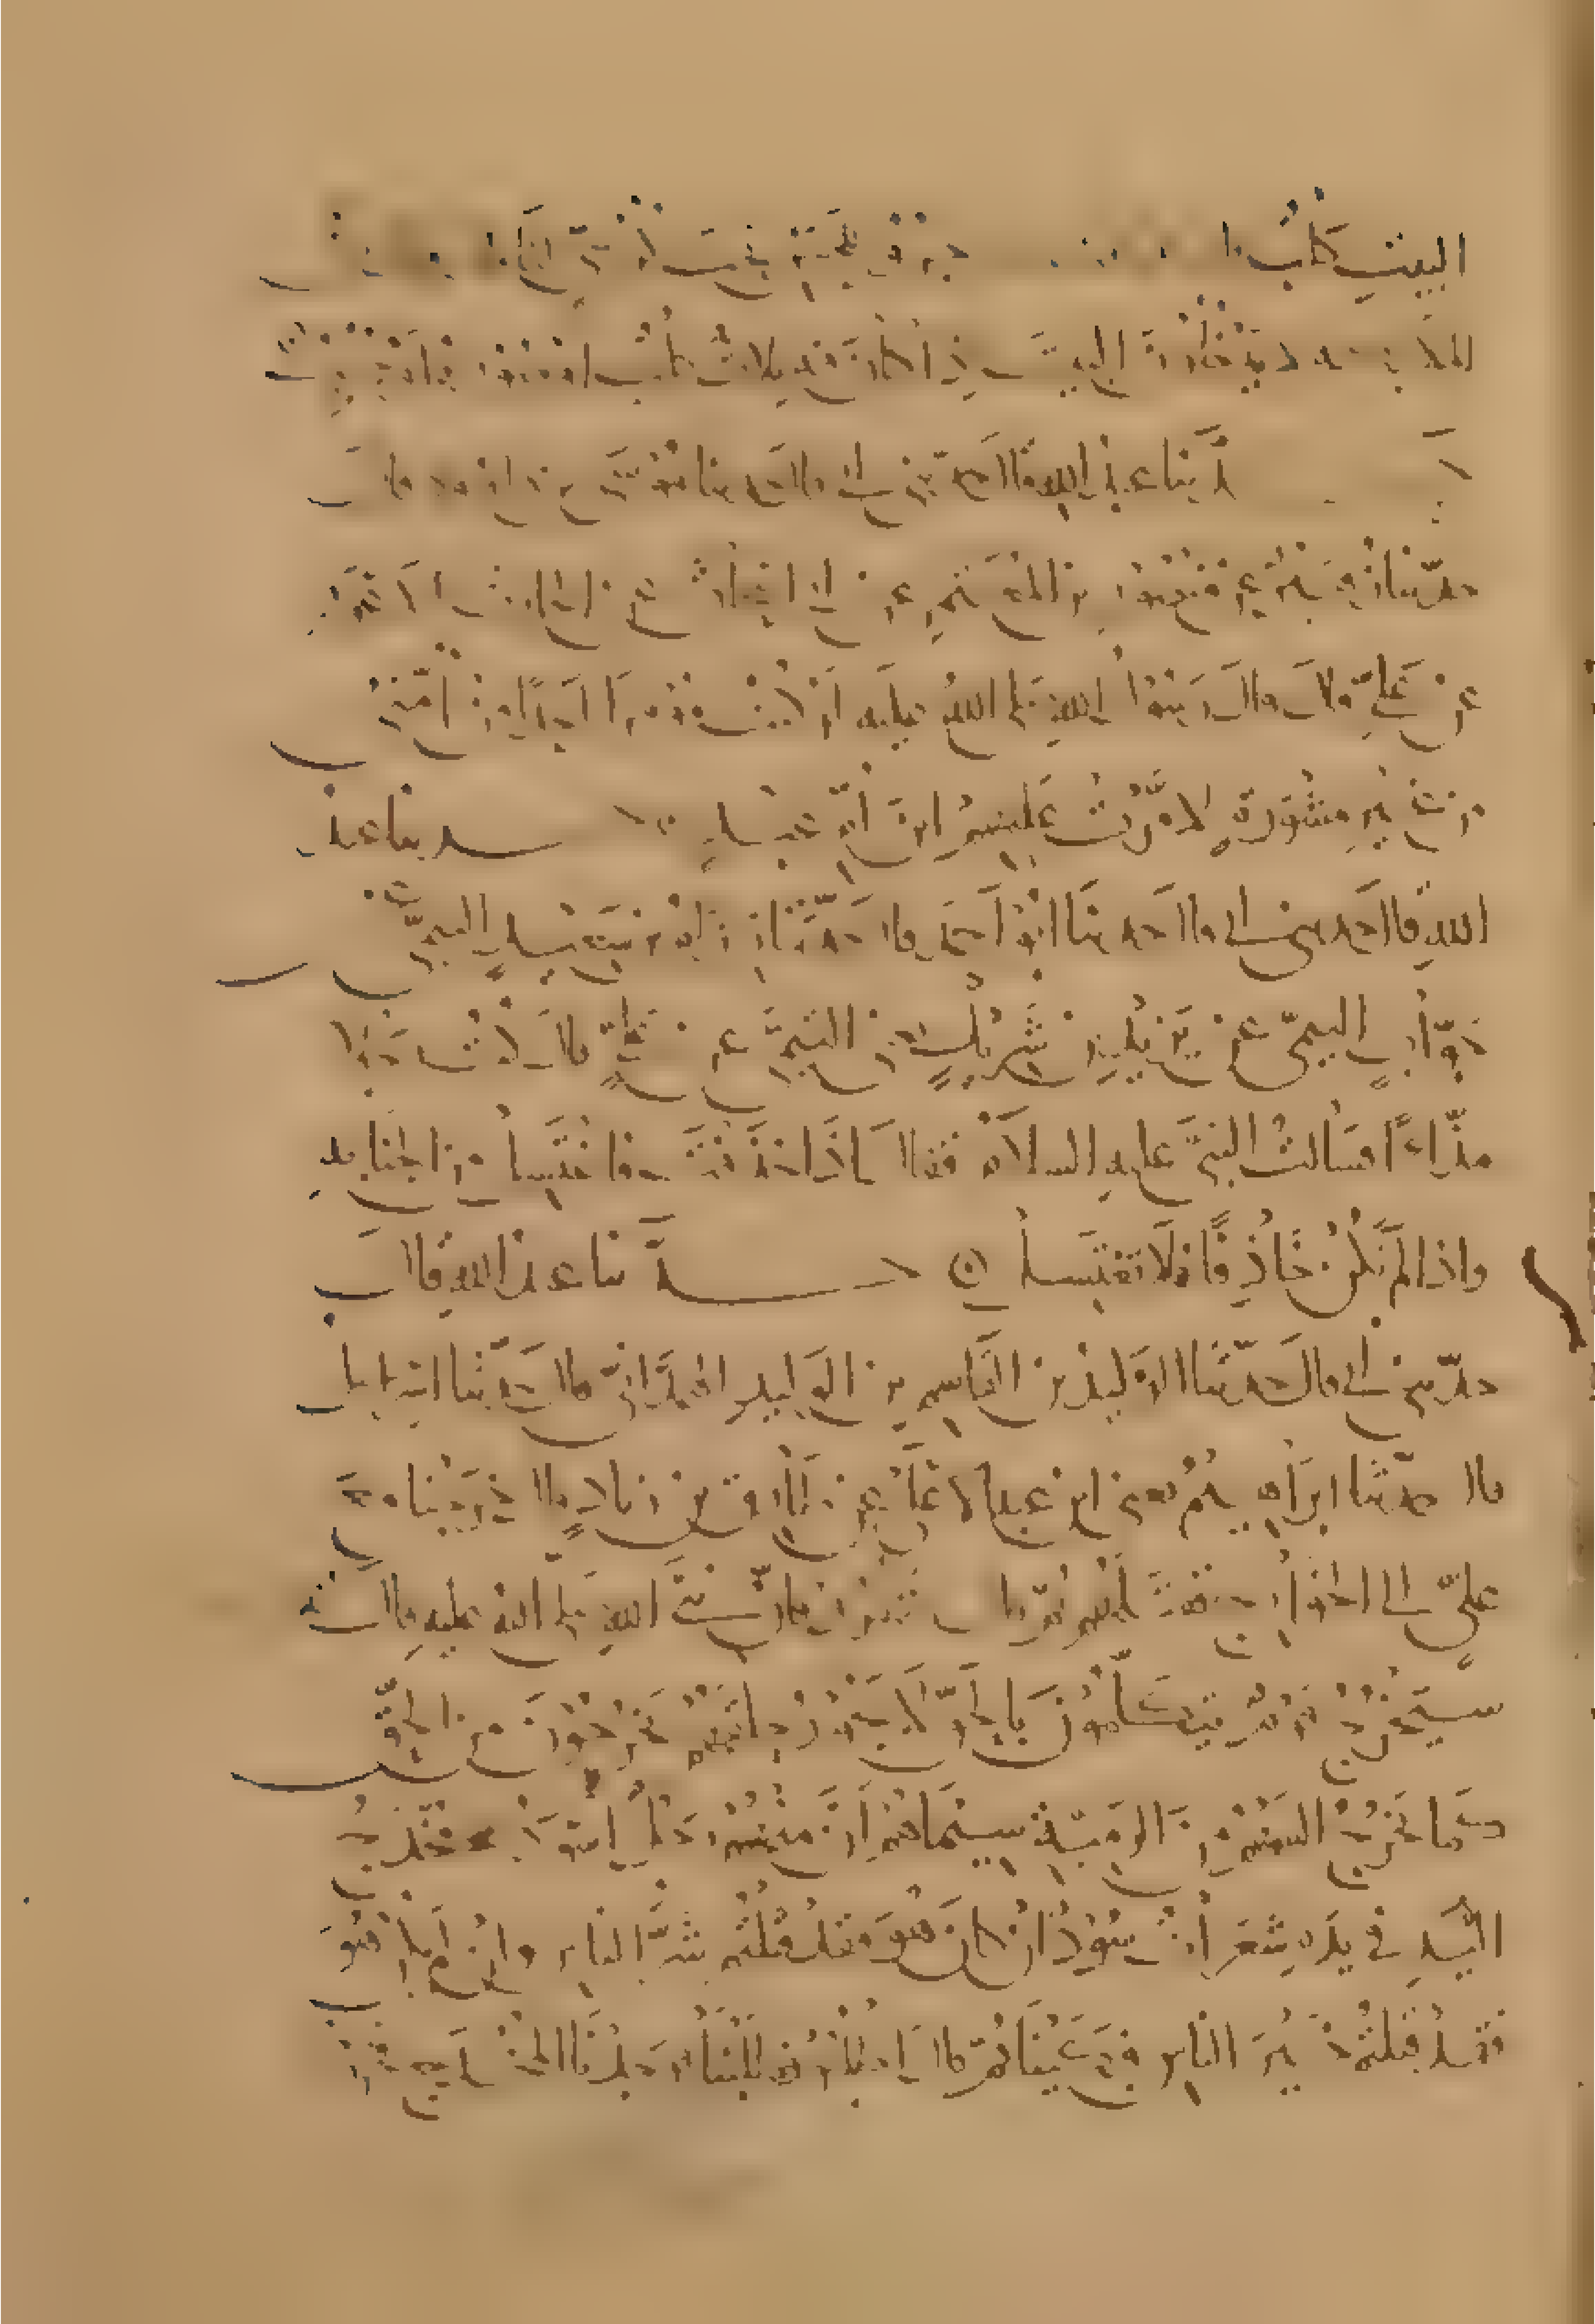 البيت كلب
الملائكة لا يدخلون البيت إذا كان فيه ثلاث كلب أو
حدثنا عبد الله قال حدثني أبي قال حدثنا بن داود قال
حدثنا زهير عن منصور بن المعتمر عن أبي إسحاق عن الحارث الأعور
عن علي قال قال رسول الله صلى الله عليه لو كنت مؤمرا أحدا من أمتي
من غير مشورة لأمرت عليهم ابن أم عبد حدثنا عبد
الله قال حدثني أبي قال حدثنا أبو أحمد قال حدثنا رزام بن سعيد التيمي
جواب التيمي عن يزيد بن شريك التيمي عن علي قال كنت رجلا
مذاء فسألت النبي عليه السلام فقال إذا خذفت فاغتسل من الجنابة
وإذا لم تكن خاذفا فلا تغتسل حدثنا عبد الله قال
حدثني أبي قال حدثنا الوليد بن القاسم بن الوليد الهمداني قال حدثنا إسرائيل
قال حدثنا إبراهيم يعني ابن عبد الأعلى عن طارق بن زياد قال خرجنا مع
علي إلى الخوارج فقتلهم ثم قال انظروا فإن نبي الله صلى الله عليه قال إنه
سيخرج قوم يتكلمون بالحق لا يجوز حلقهم يخرجون من الحق
كما يخرج السهم من الرمية سيماهم أن منهم رجلا أسود مخدج
اليد في يده شعرات سود إن كان هو فقد قتلتم شر الناس وإن لم يكن هو
فقد قتلتم خير الناس فبكينا ثم قال اطلبوا فطلبنا فوجدنا المخدج فخررنا